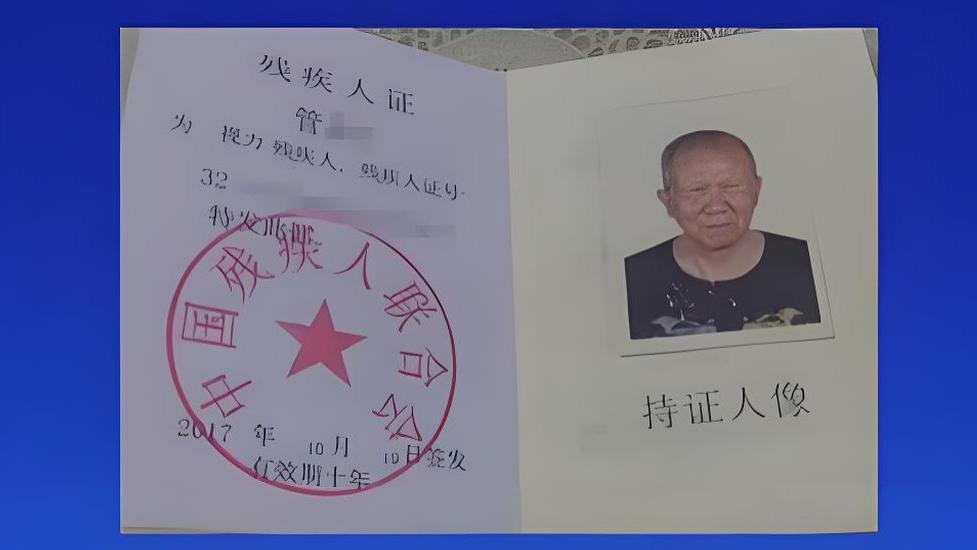 残疾人证
管
为 视力残疾人，残疾人证号
32
特发此证
中国残疾人联合会
2017 年 10月 10日签发
有效期十年
持证人像